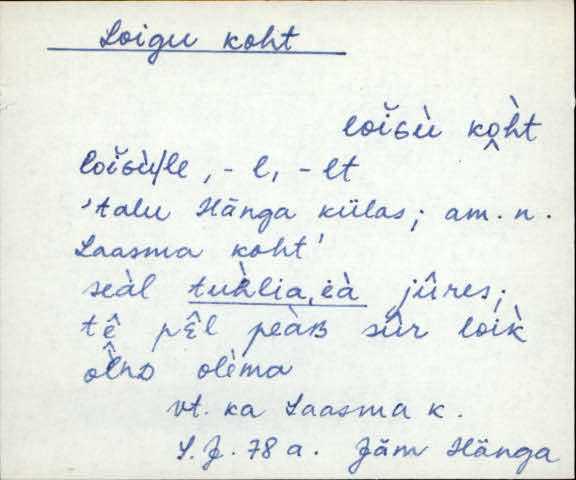 Loigu koht
loĭɢù kò̭ht
loĭɢù/le, -l, -lt
'talu Hänga külas; am. n.
Laasma koht'
seàl tuùlia,èà jûres;
tê̬ pε̂l peàʙ sûr loik̀
ôlnᴅ olèma
vt. ka Laasma k.
S.J. 78 a. Jäm Hänga